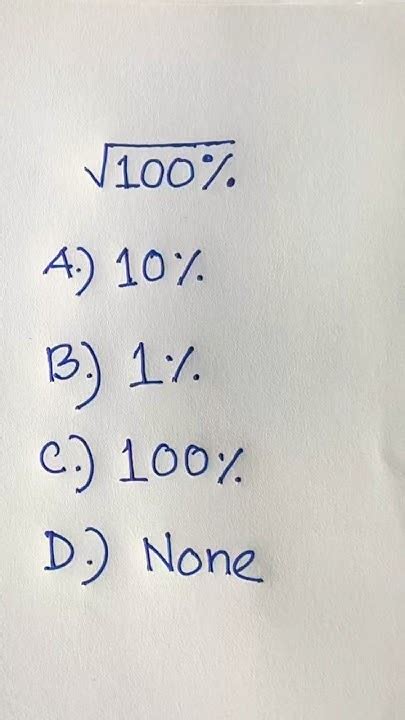 √100%
A.) 10%
B.) 1%
C.) 100%
D.) None